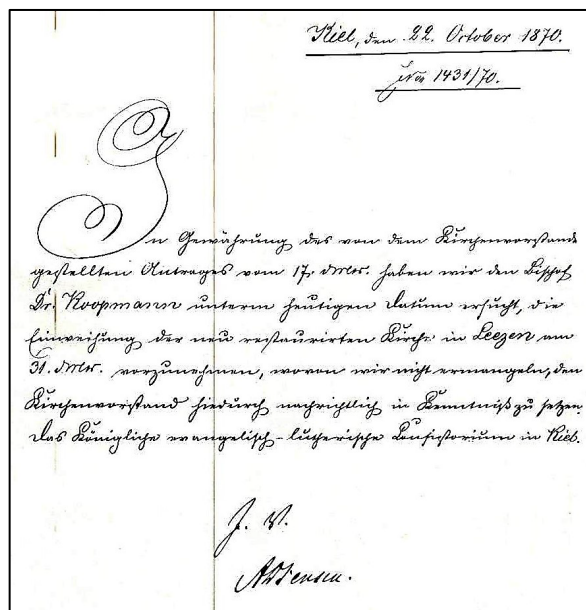 Kiel, den 22. October 1870.
Jrn 1431/70.
In Gewährung des von dem Kirchenvorstande
gestellten Antrages vom 17. dMts. haben wir den Bischof
Dr. Koopmann unterm heutigen Datum ersucht, die
Einweihung der neu restaurirten Kirche in Leezen am
31. dMts. vorzunehmen, wovon wir nicht ermangeln, den
Kirchenvorstand hiedurch nachrichtlich in Kenntniß zu setzen.
Das Königliche evangelisch-lutherische Consistorium in Kiel.
J. V.